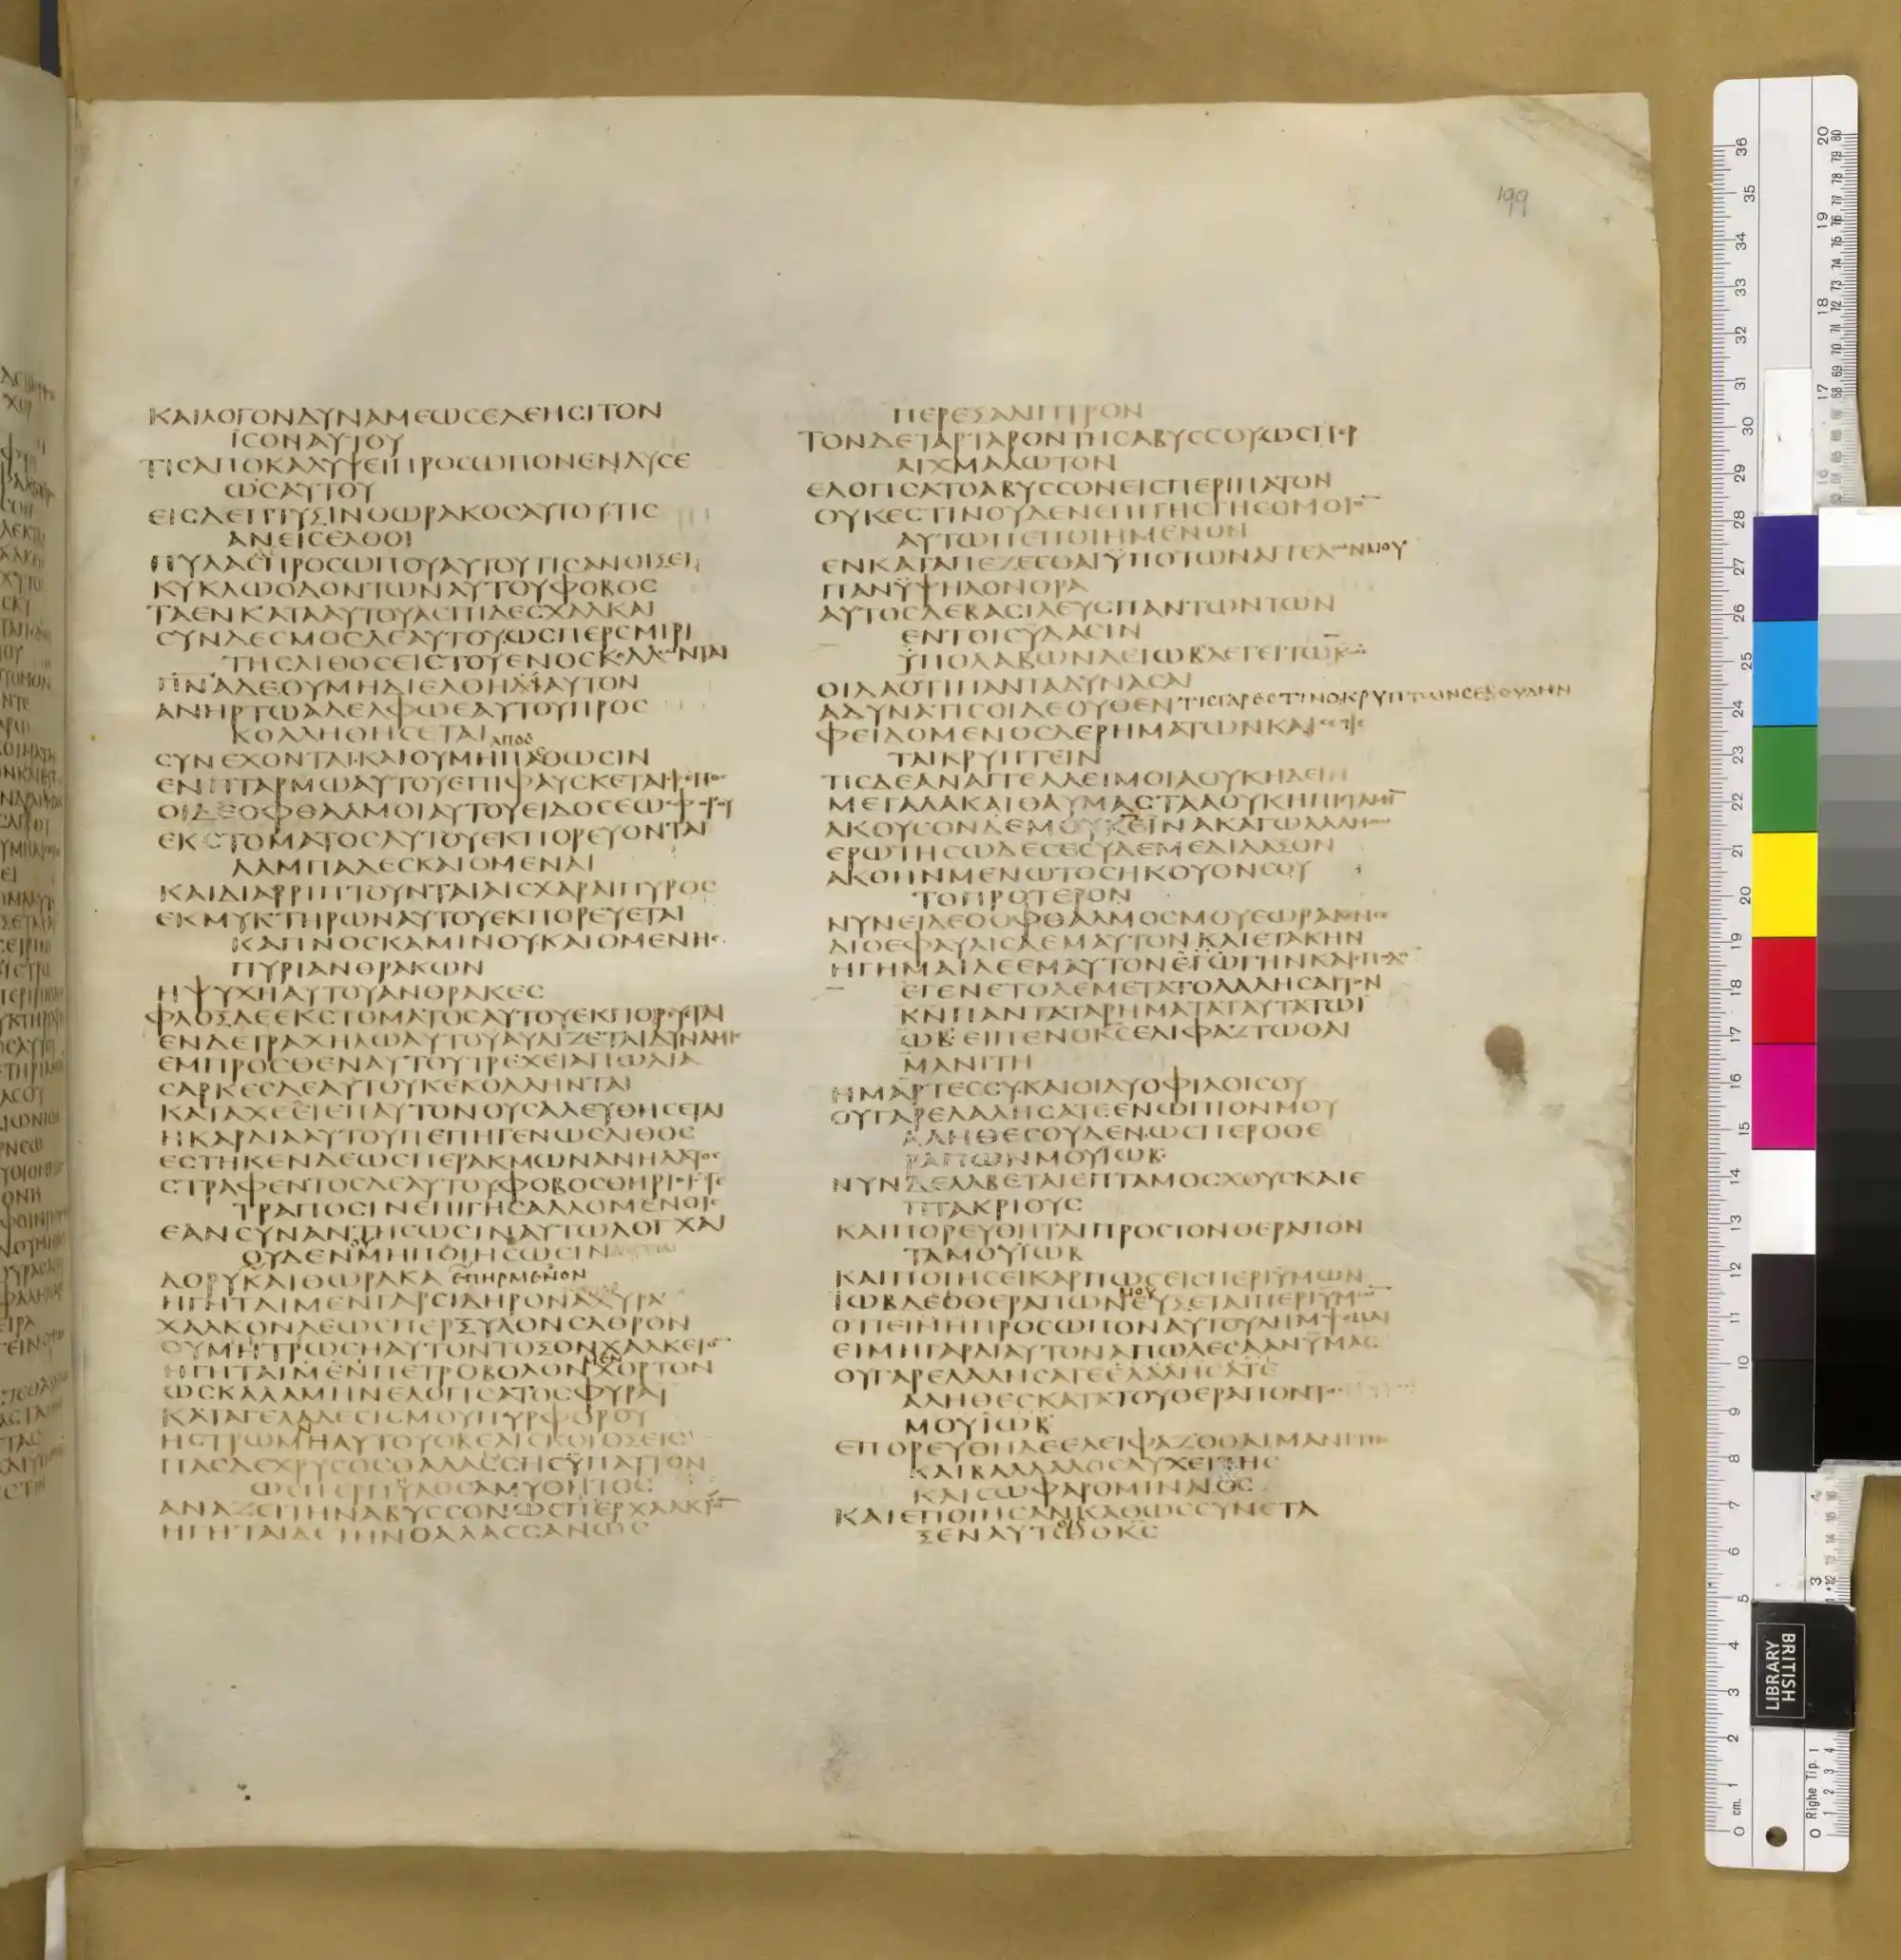 ΚΑΙΛΟΓΟΝΔΥΝΑΜΕΩΣΕΛΕΗΣΙΤΟΝ
ΙΣΟΝΑΥΤΟΥ
ΤΙΣΑΠΟΚΑΛΥΨΕΙΠΡΟΣΩΠΟΝΕΝΔΥΣΕ
ΩΣΑΥΤΟΥ
ΕΙΣΔΕΠΤΥΞΙΝΘΩΡΑΚΟΣΑΥΤΟΥΤΙΣ
ΑΝΕΙΣΕΛΘΟΙ
ΠΥΛΑΣΠΡΟΣΩΠΟΥΑΥΤΟΥΤΙΣΑΝΟΙΞΕΙ
ΚΥΚΛΩΟΔΟΝΤΩΝΑΥΤΟΥΦΟΒΟΣ
ΤΑΕΝΚΑΤΑΑΥΤΟΥΑΣΠΙΔΕΣΧΑΛΚΑΙ
ΣΥΝΔΕΣΜΟΣΔΕΑΥΤΟΥΩΣΠΕΡΣΜΙΡΙ
ΤΗΣΛΙΘΟΣΕΙΣΤΟΥΕΝΟΣΚΟΛΛΩΝΤΑΙ
ΠΝΑΔΕΟΥΜΗΔΙΕΛΘΗΑΥΤΟΝ
ΑΝΗΡΤΩΑΔΕΛΦΩΕΑΥΤΟΥΠΡΟΣ
ΚΟΛΛΗΘΗΣΕΤΑΙ
ΣΥΝΕΧΟΝΤΑΙΚΑΙΟΥΜΗΠΑΘΩΣΙΝ
ΕΝΠΤΑΡΜΩΑΥΤΟΥΕΠΙΦΑΥΣΚΕΤΑΙΦΕΓΓΟΣ
ΟΙΔΕΟΦΘΑΛΜΟΙΑΥΤΟΥΕΙΔΟΣΕΩΣΦΟΡΟΥ
ΕΚΣΤΟΜΑΤΟΣΑΥΤΟΥΕΚΠΟΡΕΥΟΝΤΑΙ
ΛΑΜΠΑΔΕΣΚΑΙΟΜΕΝΑΙ
ΚΑΙΔΙΑΡΡΙΠΤΟΥΝΤΑΙΑΙΣΧΑΡΑΙΠΥΡΟΣ
ΕΚΜΥΚΤΗΡΩΝΑΥΤΟΥΕΚΠΟΡΕΥΕΤΑΙ
ΚΑΠΝΟΣΚΑΜΙΝΟΥΚΑΙΟΜΕΝΗΣ
ΠΥΡΙΑΝΘΡΑΚΩΝ
ΗΨΥΧΗΑΥΤΟΥΑΝΘΡΑΚΕΣ
ΦΛΟΞΔΕΕΚΣΤΟΜΑΤΟΣΑΥΤΟΥΕΚΠΟΡΕΥΕΤΑΙ
ΕΝΔΕΤΡΑΧΗΛΩΑΥΤΟΥΑΥΛΙΖΕΤΑΙΔΥΝΑΜΙΣ
ΕΜΠΡΟΣΘΕΝΑΥΤΟΥΤΡΕΧΕΙΑΠΩΛΙΑ
ΣΑΡΚΕΣΔΕΑΥΤΟΥΚΕΚΟΛΛΗΝΤΑΙ
ΚΑΤΑΧΕΕΙΕΠΑΥΤΟΝΟΥΣΑΛΕΥΘΗΣΕΤΑΙ
ΗΚΑΡΔΙΑΑΥΤΟΥΠΕΠΗΓΕΝΩΣΛΙΘΟΣ
ΕΣΤΗΚΕΝΔΕΩΣΠΕΡΑΚΜΩΝΑΝΗΛΑΤΟΣ
ΣΤΡΑΦΕΝΤΟΣΔΕΑΥΤΟΥΦΟΒΟΣΘΗΡΙΟΙΣΤΕ
ΤΡΑΠΟΣΙΝΕΠΙΓΗΣΑΛΛΟΜΕΝΟΙΣ
ΕΑΝΣΥΝΑΝΤΗΣΩΣΙΝΑΥΤΩΛΟΓΧΑΙ
ΟΥΔΕΝΜΗΠΟΙΗΣΩΣΙΝ
ΔΟΡΥΚΑΙΘΩΡΑΚΑ ΕΠΗΡΜΕΝΟΝ
ΗΓΗΤΑΙΜΕΝΓΑΡΣΙΔΗΡΟΝΑΧΥΡΑ
ΧΑΛΚΟΝΔΕΩΣΠΕΡΞΥΛΟΝΣΑΘΡΟΝ
ΟΥΜΗΤΡΩΣΗΑΥΤΟΝΤΟΞΟΝΧΑΛΚΕΙΟΝ
ΗΓΗΤΑΙΜΕΝΠΕΤΡΟΒΟΛΟΝΧΟΡΤΟΝ
ΩΣΚΑΛΑΜΗΝΕΛΟΓΙΣΑΤΟΣΦΥΡΑΙ
ΚΑΤΑΓΕΛΑΔΕΣΙΣΜΟΥΠΥΡΦΟΡΟΥ
ΗΣΤΡΩΜΝΗΑΥΤΟΥΟΒΕΛΙΣΚΟΙΟΞΕΙΣ
ΠΑΣΔΕΧΡΥΣΟΣΘΑΛΑΣΣΗΣΥΠΑΥΤΟΝ
ΩΣΠΕΡΠΥΛΟΣΑΜΥΘΗΤΟΣ
ΑΝΑΖΕΙΤΗΝΑΒΥΣΣΟΝΩΣΠΕΡΧΑΛΚΙΟΝ
ΗΓΗΤΑΙΔΕΤΗΝΘΑΛΑΣΣΑΝΩΣ
ΠΕΡΕΞΑΛΙΠΤΡΟΝ
ΤΟΝΔΕΤΑΡΤΑΡΟΝΤΗΣΑΒΥΣΣΟΥΩΣΠΕΡ
ΑΙΧΜΑΛΩΤΟΝ
ΕΛΟΓΙΣΑΤΟΑΒΥΣΣΟΝΕΙΣΠΕΡΙΠΑΤΟΝ
ΟΥΚΕΣΤΙΝΟΥΔΕΝΕΠΙΓΗΣΓΗΣΟΜΟΙΟΝ
ΑΥΤΩΠΕΠΟΙΗΜΕΝΟΝ
ΕΝΚΑΤΑΠΕΖΕΣΘΑΙΥΠΟΤΩΝΑΓΓΕΛΩΝΜΟΥ
ΠΑΝΥΨΗΛΟΝΟΡΑ
ΑΥΤΟΣΔΕΒΑΣΙΛΕΥΣΠΑΝΤΩΝΤΩΝ
ΕΝΤΟΙΣΥΔΑΣΙΝ
ΥΠΟΛΑΒΩΝΔΕΙΩΒΛΕΓΕΙΤΩΚΩ
ΟΙΔΑΟΤΙΠΑΝΤΑΔΥΝΑΣΑΙ
ΑΔΥΝΑΤΙΣΟΙΔΕΟΥΘΕΝΤΙΣΓΑΡΕΣΤΙΝΟΚΡΥΠΤΩΝΣΕΒΟΥΛΗΝ
ΦΕΙΔΟΜΕΝΟΣΔΕΡΗΜΑΤΩΝΚΑΙ
ΤΑΙΚΡΥΠΤΕΙΝ
ΤΙΣΔΕΑΝΑΓΓΕΛΛΕΙΜΟΙΑΟΥΚΗΔΕΙΝ
ΜΕΓΑΛΑΚΑΙΘΑΥΜΑΣΤΑΑΟΥΚΗΠΙΣΤΑΜΗΝ
ΑΚΟΥΣΟΝΔΕΜΟΥΚΕΙΝΑΚΑΓΩΛΑΛΗΣΩ
ΕΡΩΤΗΣΩΔΕΣΕΣΥΔΕΜΕΔΙΔΑΞΟΝ
ΑΚΟΗΝΜΕΝΩΤΟΣΗΚΟΥΟΝΣΟΥ
ΤΟΠΡΟΤΕΡΟΝ
ΝΥΝΕΙΔΕΟΟΦΘΑΛΜΟΣΜΟΥΕΩΡΑΚΕΝΣΕ
ΔΙΟΕΦΑΥΛΙΣΑΕΜΑΥΤΟΝΚΑΙΕΤΑΚΗΝ
ΗΓΗΜΑΙΔΕΕΜΑΥΤΟΝΕΓΩΓΗΝΚΑΙΣΠΟΔΟΝ
ΕΓΕΝΕΤΟΔΕΜΕΤΑΤΟΛΑΛΗΣΑΙΤΟΝ
ΚΝΠΑΝΤΑΤΑΡΗΜΑΤΑΤΑΥΤΑΤΩΙ
ΩΒΕΙΠΕΝΟΚΣΕΛΙΦΑΖΤΩΘΑΙ
ΜΑΝΙΤΗ
ΗΜΑΡΤΕΣΣΥΚΑΙΟΙΔΥΟΦΙΛΟΙΣΟΥ
ΟΥΓΑΡΕΛΑΛΗΣΑΤΕΕΝΩΠΙΟΝΜΟΥ
ΑΛΗΘΕΣΟΥΔΕΝΩΣΠΕΡΟΘΕ
ΡΑΠΩΝΜΟΥΙΩΒ
ΝΥΝΔΕΛΑΒΕΤΑΙΕΠΤΑΜΟΣΧΟΥΣΚΑΙΕ
ΠΤΑΚΡΙΟΥΣ
ΚΑΙΠΟΡΕΥΘΗΤΑΙΠΡΟΣΤΟΝΘΕΡΑΠΟΝ
ΤΑΜΟΥΙΩΒ
ΚΑΙΠΟΙΗΣΕΙΚΑΡΠΩΣΕΙΣΠΕΡΙΥΜΩΝ
ΙΩΒΔΕΟΘΕΡΑΠΩΝΜΟΥΕΥΞΕΤΑΙΠΕΡΙΥΜΩΝ
ΟΤΙΕΙΜΗΠΡΟΣΩΠΟΝΑΥΤΟΥΛΗΜΨΟΜΑΙ
ΕΙΜΗΓΑΡΔΙΑΥΤΟΝΑΠΩΛΕΣΑΑΝΥΜΑΣ
ΟΥΓΑΡΕΛΑΛΗΣΑΤΕΕΛΑΛΗΣΑΤΕ
ΑΛΗΘΕΣΚΑΤΑΤΟΥΘΕΡΑΠΟΝΤΟΣ
ΜΟΥΙΩΒ
ΕΠΟΡΕΥΘΗΔΕΕΛΕΙΦΑΖΟΘΑΙΜΑΝΙΤΗΣ
ΚΑΙΒΑΛΔΑΔΟΣΑΥΧΕΙΤΗΣ
ΚΑΙΣΩΦΑΡΟΜΙΝΑΙΟΣ
ΚΑΙΕΠΟΙΗΣΑΝΚΑΘΩΣΣΥΝΕΤΑ
ΞΕΝΑΥΤΩΟΚΣ
199
BRITISH LIBRARY